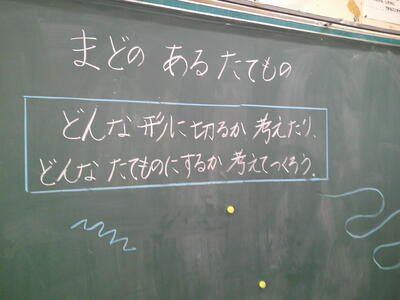 まどの ある たてもの
どんな 形に 切るか 考えたり、
どんな たてものにするか 考えてつくろう。